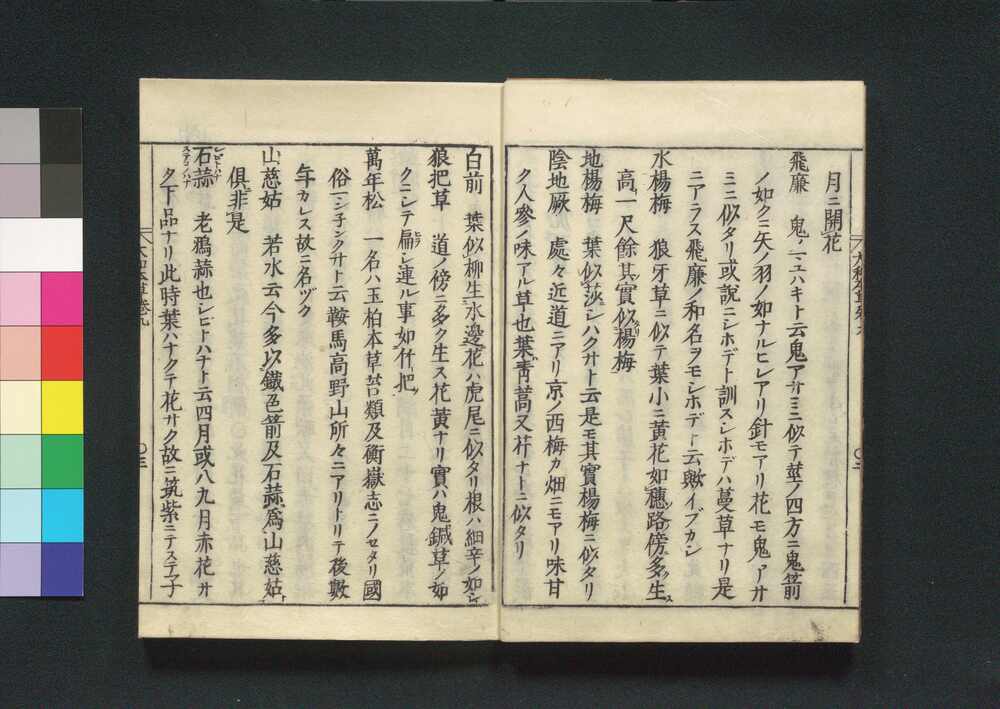 月ニ開花
飛廉　鬼ノマユハキト云鬼アサミニ似テ莖ノ四方ニ鬼箭
ノ如クニ矢ノ羽ノ如ナルヒレアリ針モアリ花モ鬼アサ
ミニ似タリ或説ニシホデト訓スシホデハ蔓草ナリ是
ニアラス飛廉ノ和名ヲモシホデト云歟イブカシ
水楊梅　狼牙草ニ似テ葉小ニ黄花如穗路傍多生ス
高一尺餘其實似楊梅
地楊梅　葉似莎シハクサト云是モ其實楊梅ニ似タリ
陰地厥　處々近道ニアリ京ノ西梅カ畑ニモアリ味甘
ク人參ノ味アル草也葉青蒿又芹ナトニ似タリ
白前　葉似柳生水邊花ハ虎尾ニ似タリ根ハ細辛ノ如シ
狼把草　道ノ傍ニ多ク生ス花黄ナリ實ハ鬼鍼草ノ如
クニシテ扁ク連ル事如什把
萬年松　一名ハ玉柏本草苔類及衡嶽志ニノセタリ國
俗一シチンクサト云鞍馬高野山所々ニアリトリテ後數
年カレス故ニ名ヅク
山慈姑　若水云今多以鐵色箭及石蒜爲山慈姑ト
俱非是
石蒜　老鴉蒜也シビトハナト云四月或八九月赤花サ
ク下品ナリ此時葉ハナクテ花サク故ニ筑紫ニテステ子
大和本草卷九